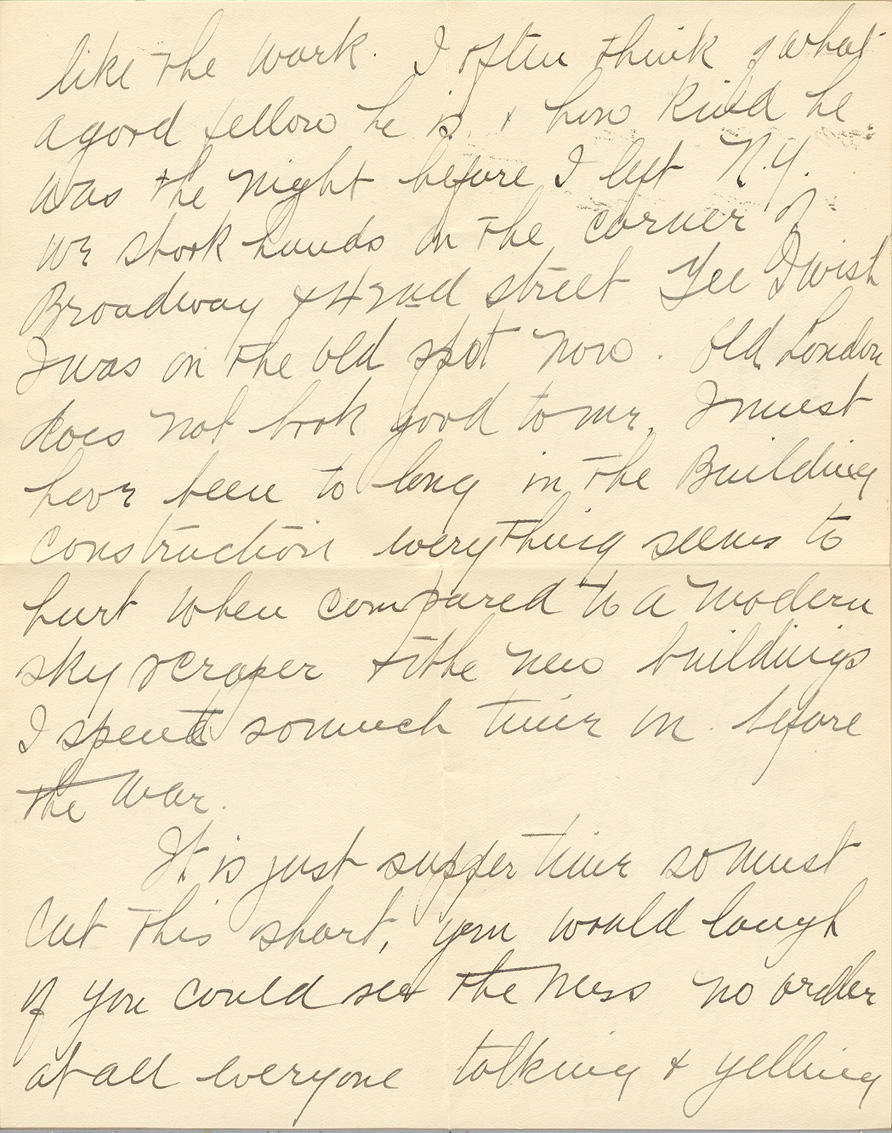 like the work. I often think of what
a good fellow he is. + how kind he
was the night before I left N.Y.
we shook hands on the corner of
Broadway + 42nd street Gee I wish
I was on the old spot now. Old London
does not look good to me, I must
have been to long in the Building
construction everything seems to
hurt when compared to a modern
sky scraper + the new buildings
I spent so much time on before
the war.
It is just supper time so must
cut this short, you would laugh
if you could see the mess no order
at all everyone talking + yelling